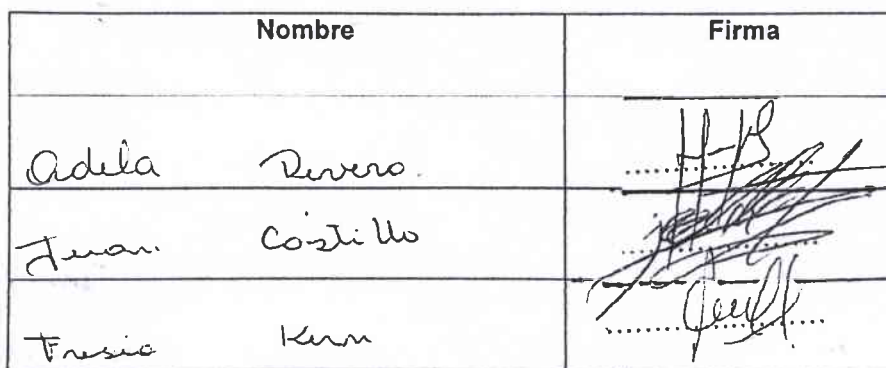 Nombre Firma
Adela Rivero.
Juan. Castillo
Fresia Kern